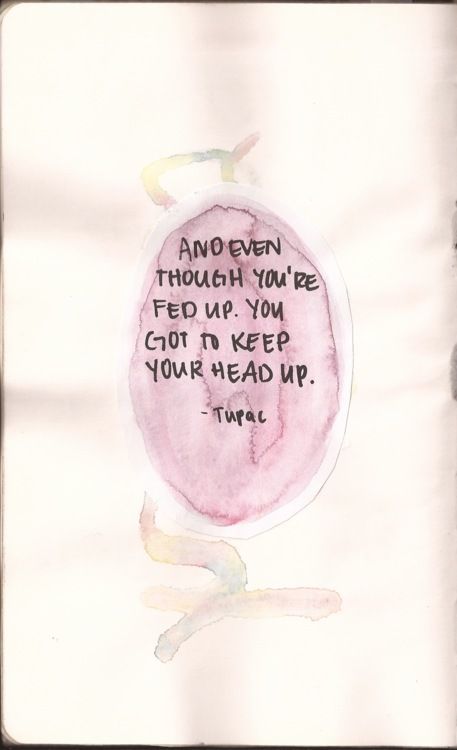 AND EVEN
THOUGH YOU'RE
FED UP. YOU
GOT TO KEEP
YOUR HEAD UP.
- Tupac